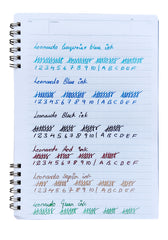 Leonardo Turquoise blue ink
1 2 3 4 5 6 7 8 9 10 A B C D E F
Leonardo Blue ink
1 2 3 4 5 6 7 8 9 10 A B C D E F
Leonardo Black ink
1 2 3 4 5 6 7 8 9 10 A B C D E F
Leonardo Red ink
1 2 3 4 5 6 7 8 9 10 A B C D E F
Leonardo Sepia ink
1 2 3 4 5 6 7 8 9 10 A B C D E F
Leonardo Green ink
1 2 3 4 5 6 7 8 9 10 A B C D E F